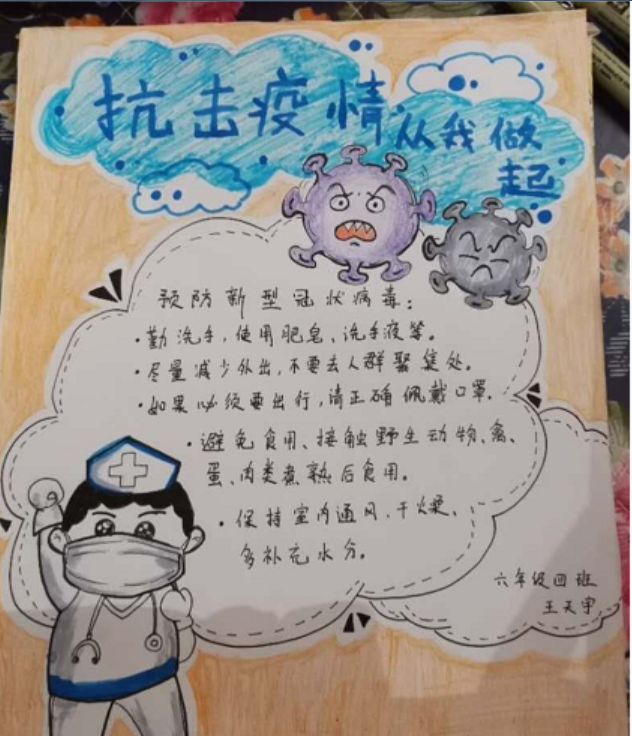 抗击疫情从我做
起
预防新型冠状病毒:
·勤洗手,使用肥皂、洗手液等。
·尽量减少外出,不要去人群聚集处。
·如果必须要出行,请正确佩戴口罩.
·避免食用、接触野生动物、禽、
蛋、肉类煮熟后食用。
·保持室内通风,干燥、
多补充水分。
六年级四班
王天宇